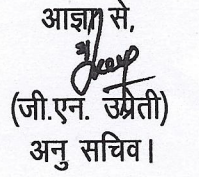 आज्ञा से,
(जी.एन. उप्रेती)
अनु सचिव।